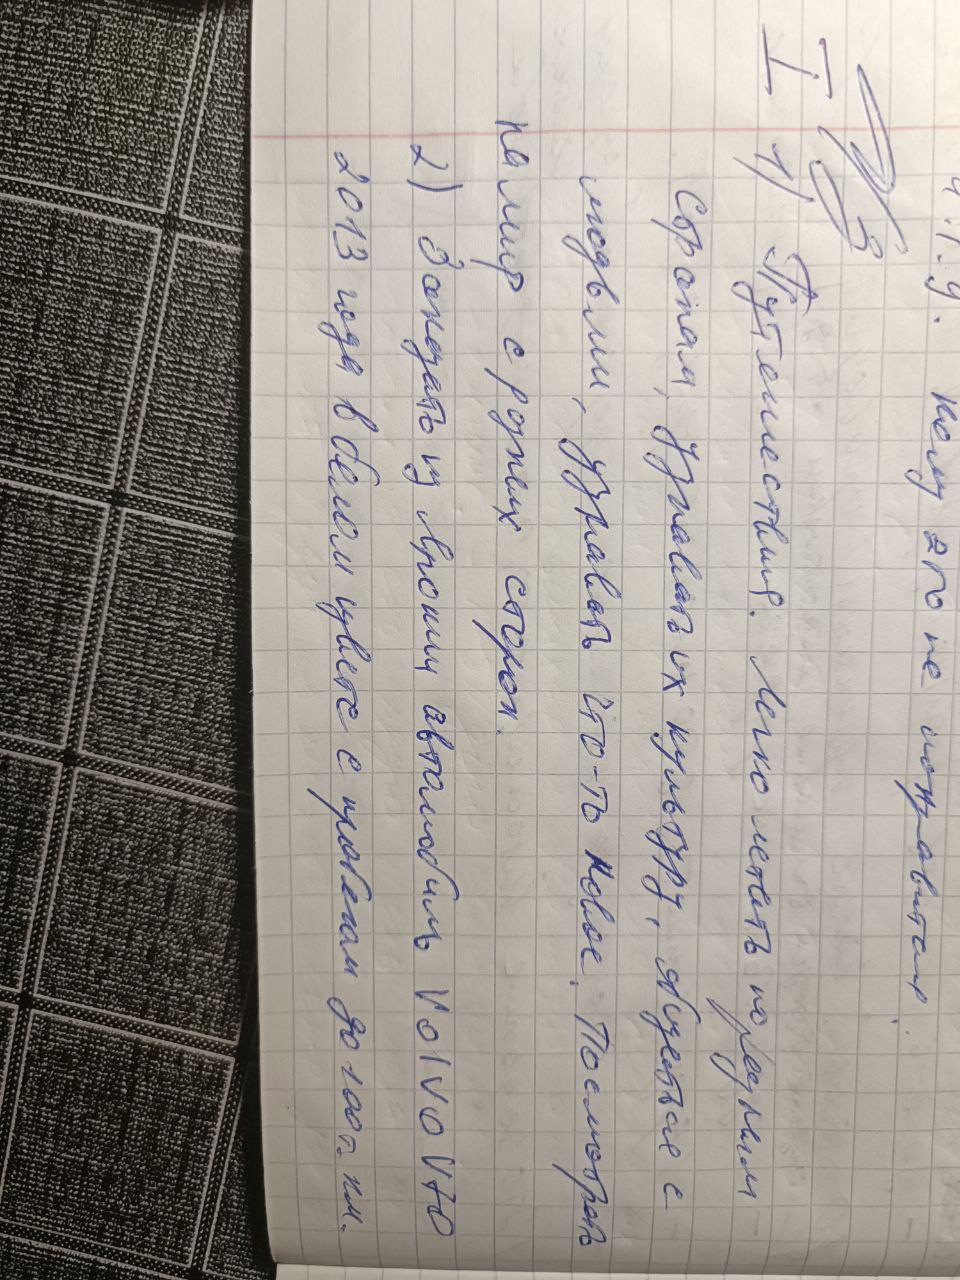 кому это не понравится.
ДЗ
I 1) Путешествия. Легко летать по разным
странам, узнавать их культуру, общаться с
людьми, узнавать что-то новое. Посмотреть
на мир с разных сторон.
2) Заказать из Японии автомобиль Volvo V40
2013 года в белом цвете с пробегом до 100т. км.